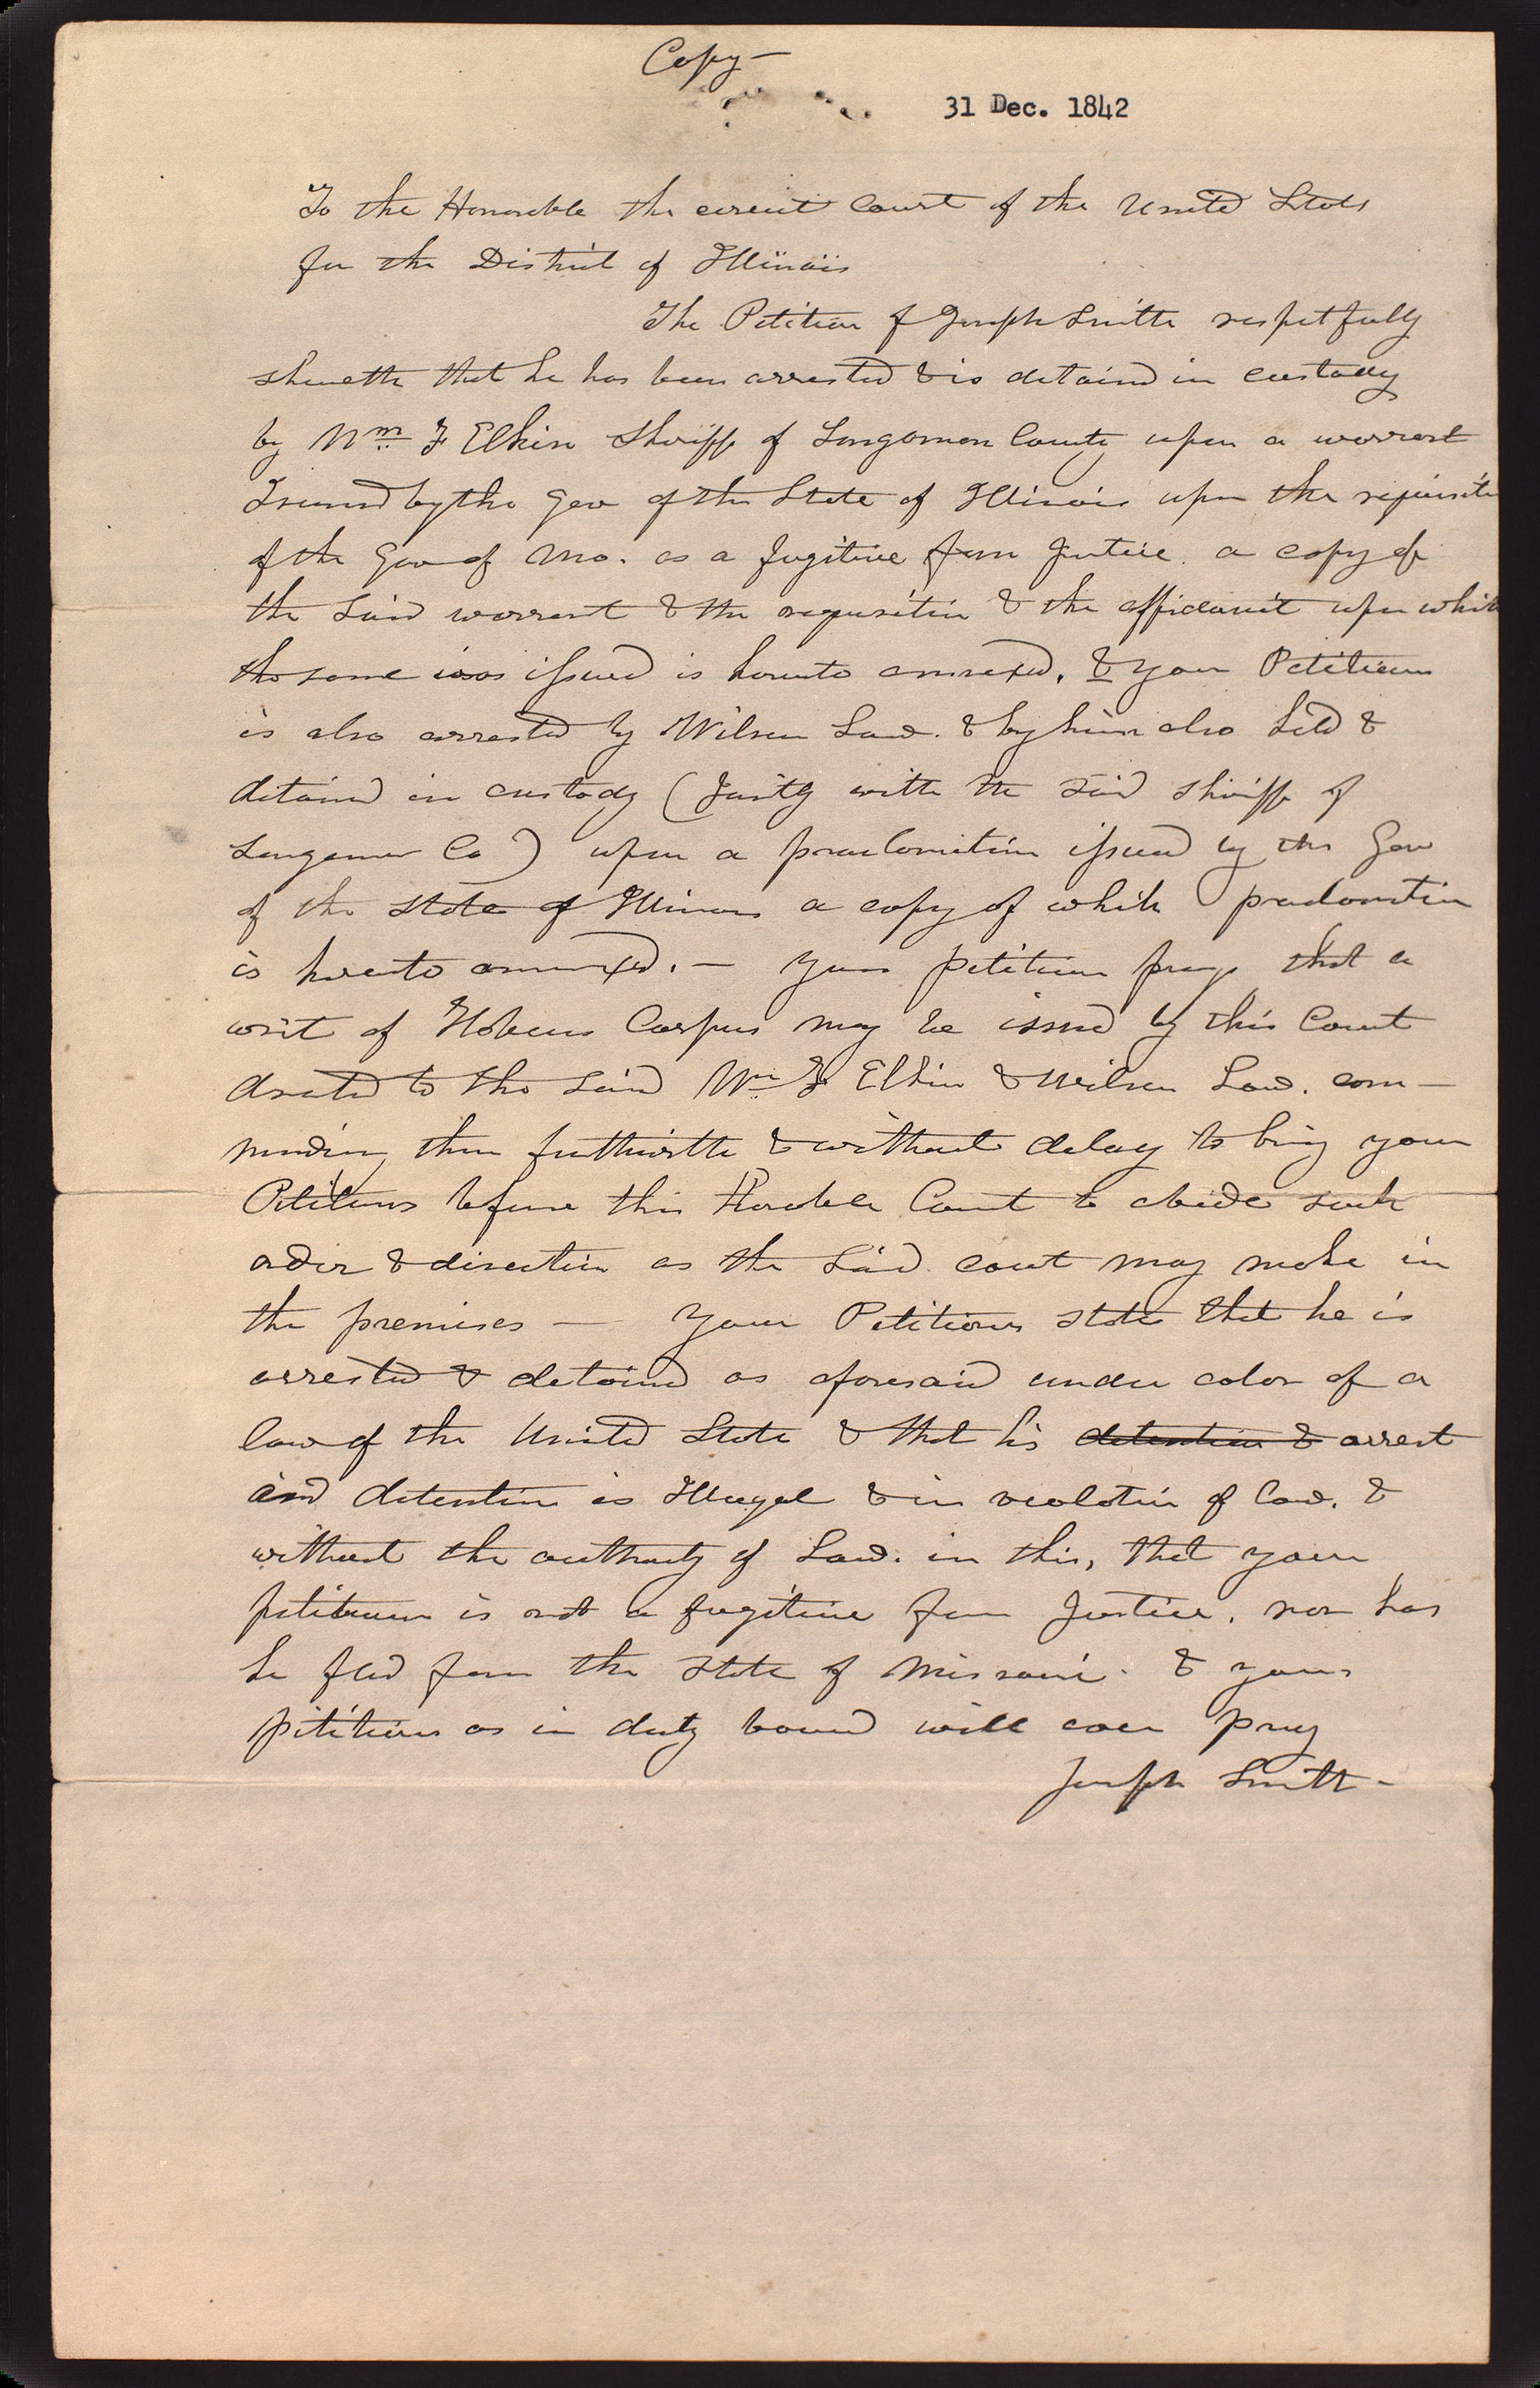 Copy—
31 Dec. 1842
To the Honorable the circuit Court of the United States
for the District of Illinois
The Petition of Joseph Smith respetfully
sheweth that he has been arrested & is detaind in custody
by Wm. F Elkin Sheriff of Sangamon County upon a warrant
Issued by the Gov of the State of Illinois upon the requisiti
of the Gov of Mo. as a fugitive from Justice. a copy of
the said warrant & the requisition & the affidavit upon which
the same was issued is hereunto annexed. & your Petitioner
is also arrested by Wilson Law. & by him also held &
detained in custody (Jointly with the said sheriff of
Sangamon Co) upon a proclomation issued by the Gov
of the state of Illinois a copy of which proclomation
is hereunto annexed. — Your petitioner prays that a
writ of Habeus Corpus may be issued by this Court
directed to the said Wm. F Elkin & Wilson Law. com—
manding them forthwith & without delay to bring your
Petitioner before this Honorable Court to abide such
order & direction as the said court may make in
the premises — Your Petitioner states that he is
arrested & detained as aforesaid under color of a
law of the United State & that his detention & arrest
and detention is Illegal & in violation of law. &
without the authority of Law. in this, that your
petitioner is not a fugitive from Justice. nor has
he fled from the state of Missouri. & your
petitioner as in duty bound will ever pray
Joseph Smith—